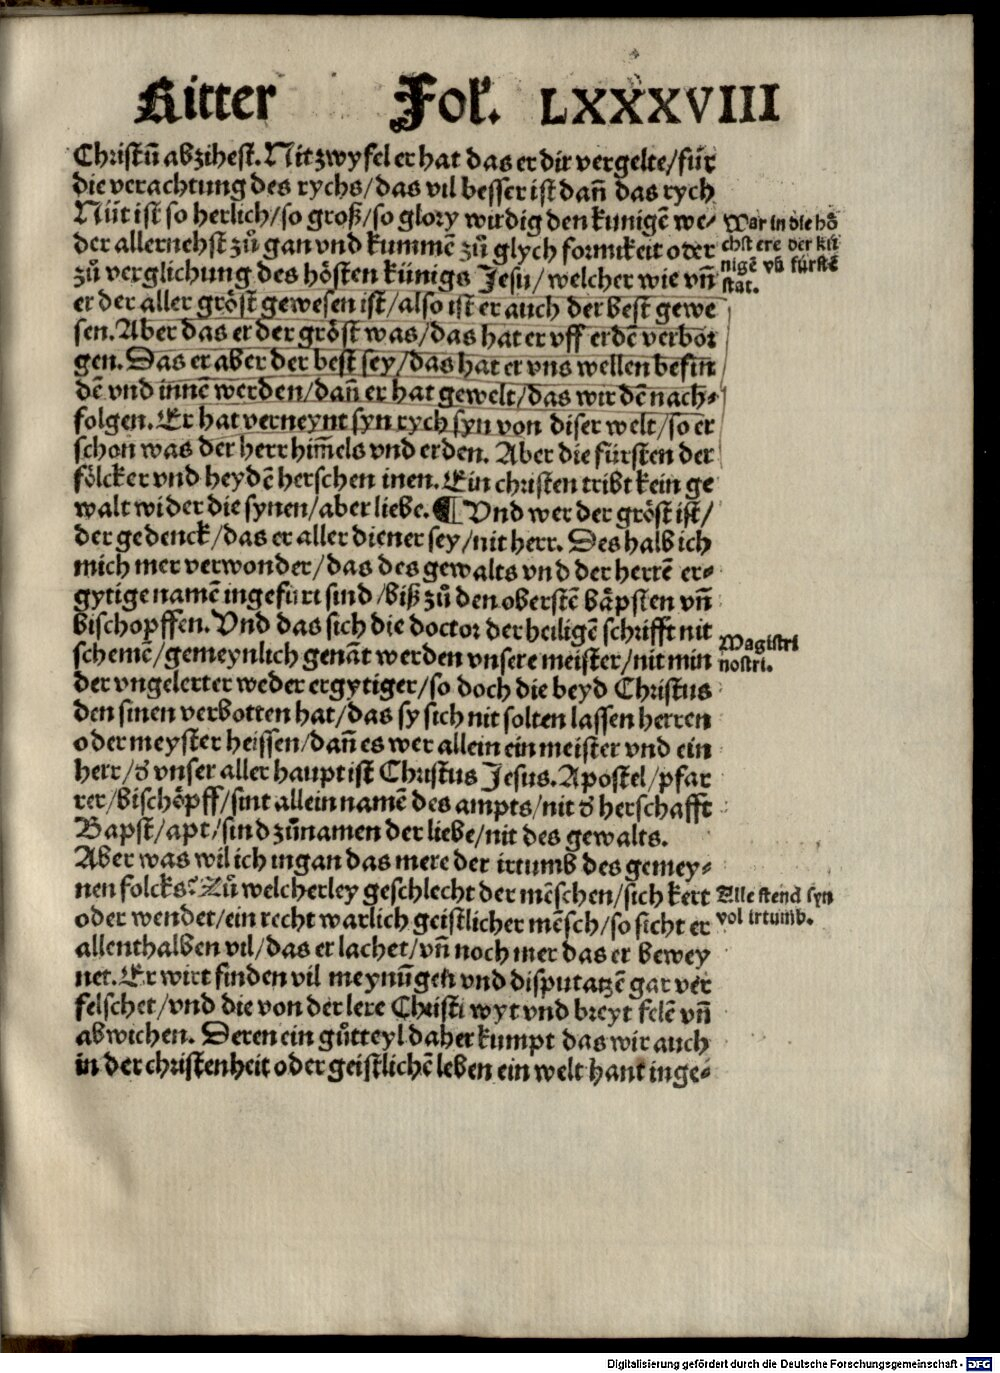 Ritter Fol. LXXXVIII
Christū abzihest. Nit zwyfel er hat das er dir vergelte/für
die verachtung des rychs/das vil besser ist dañ das rych
Nüt ist so herlich/so groß/so glory wirdig den kunigē we-
der allernehst zů gan vnd kummē zů glych formikeit oder
zů verglichung des hösten künigs Jesu/welcher wie vñ
er der aller gröst gewesen ist/also ist er auch der best gewe
sen. Aber das er der gröst was/das hat er vff erdē verbor
gen. Das er aber der best sey/das hat er vns wellen befin
dē vnd innē werden/dañ er hat gewelt/das wir dē nach-
folgen. Er hat verneynt syn rych syn von diser welt/so er
schon was der herr him̄els vnd erden. Aber die fürsten der
fölcker vnd heydē herschen inen. Ein christen tribt kein ge
walt wider die synen/aber liebe. ¶ Vnd wer der gröst ist/
der gedenck/das er aller diener sey/nit herr. Deshalb ich
mich mer verwonder/das des gewalts vnd der herrē er-
gytige namē ingefürt sind/biß zů den oberstē bäpsten vñ
bischopffen. Vnd das sich die doctor der heiligē schrifft nit
schemē/gemeynlich genāt werden vnsere meister/nit min
der vngelerter weder ergytiger/so doch die beyd Christus
den sinen verbotten hat/das sy sich nit solten lassen herren
oder meyster heissen/dañ es wer allein ein meister vnd ein
herr/ð vnser aller haupt ist Christus Jesus. Apostel/pfar
rer/bischöpff/sint allein namē des ampts/nit ð herschafft
Bapst/apt/sind zůnamen der liebe/nit des gewalts.
Aber was wil ich ingan das mere der irtumb des gemey-
nen folcks? Zů welcherley geschlecht der mēschen/sich kert
oder wendet/ein recht warlich geistlicher mēsch/so sicht er
allenthalben vil/das er lachet/vñ noch mer das er bewey
net. Er wirt finden vil meynūgen vnd disputatzē gar ver
felschet/vnd die von der lere Christi wyt vnd breyt felē vñ
abwichen. Deren ein gůtteyl daher kumpt das wir auch
in der christenheit oder geistlichē leben ein welt hant inge-
War in die hö
chst ere der kü
nigē vñ fürstē
stat.
Magistri
nostri.
Alle stend syn
vol irtumb.
Digitalisierung gefördert durch die Deutsche Forschungsgemeinschaft - DFG